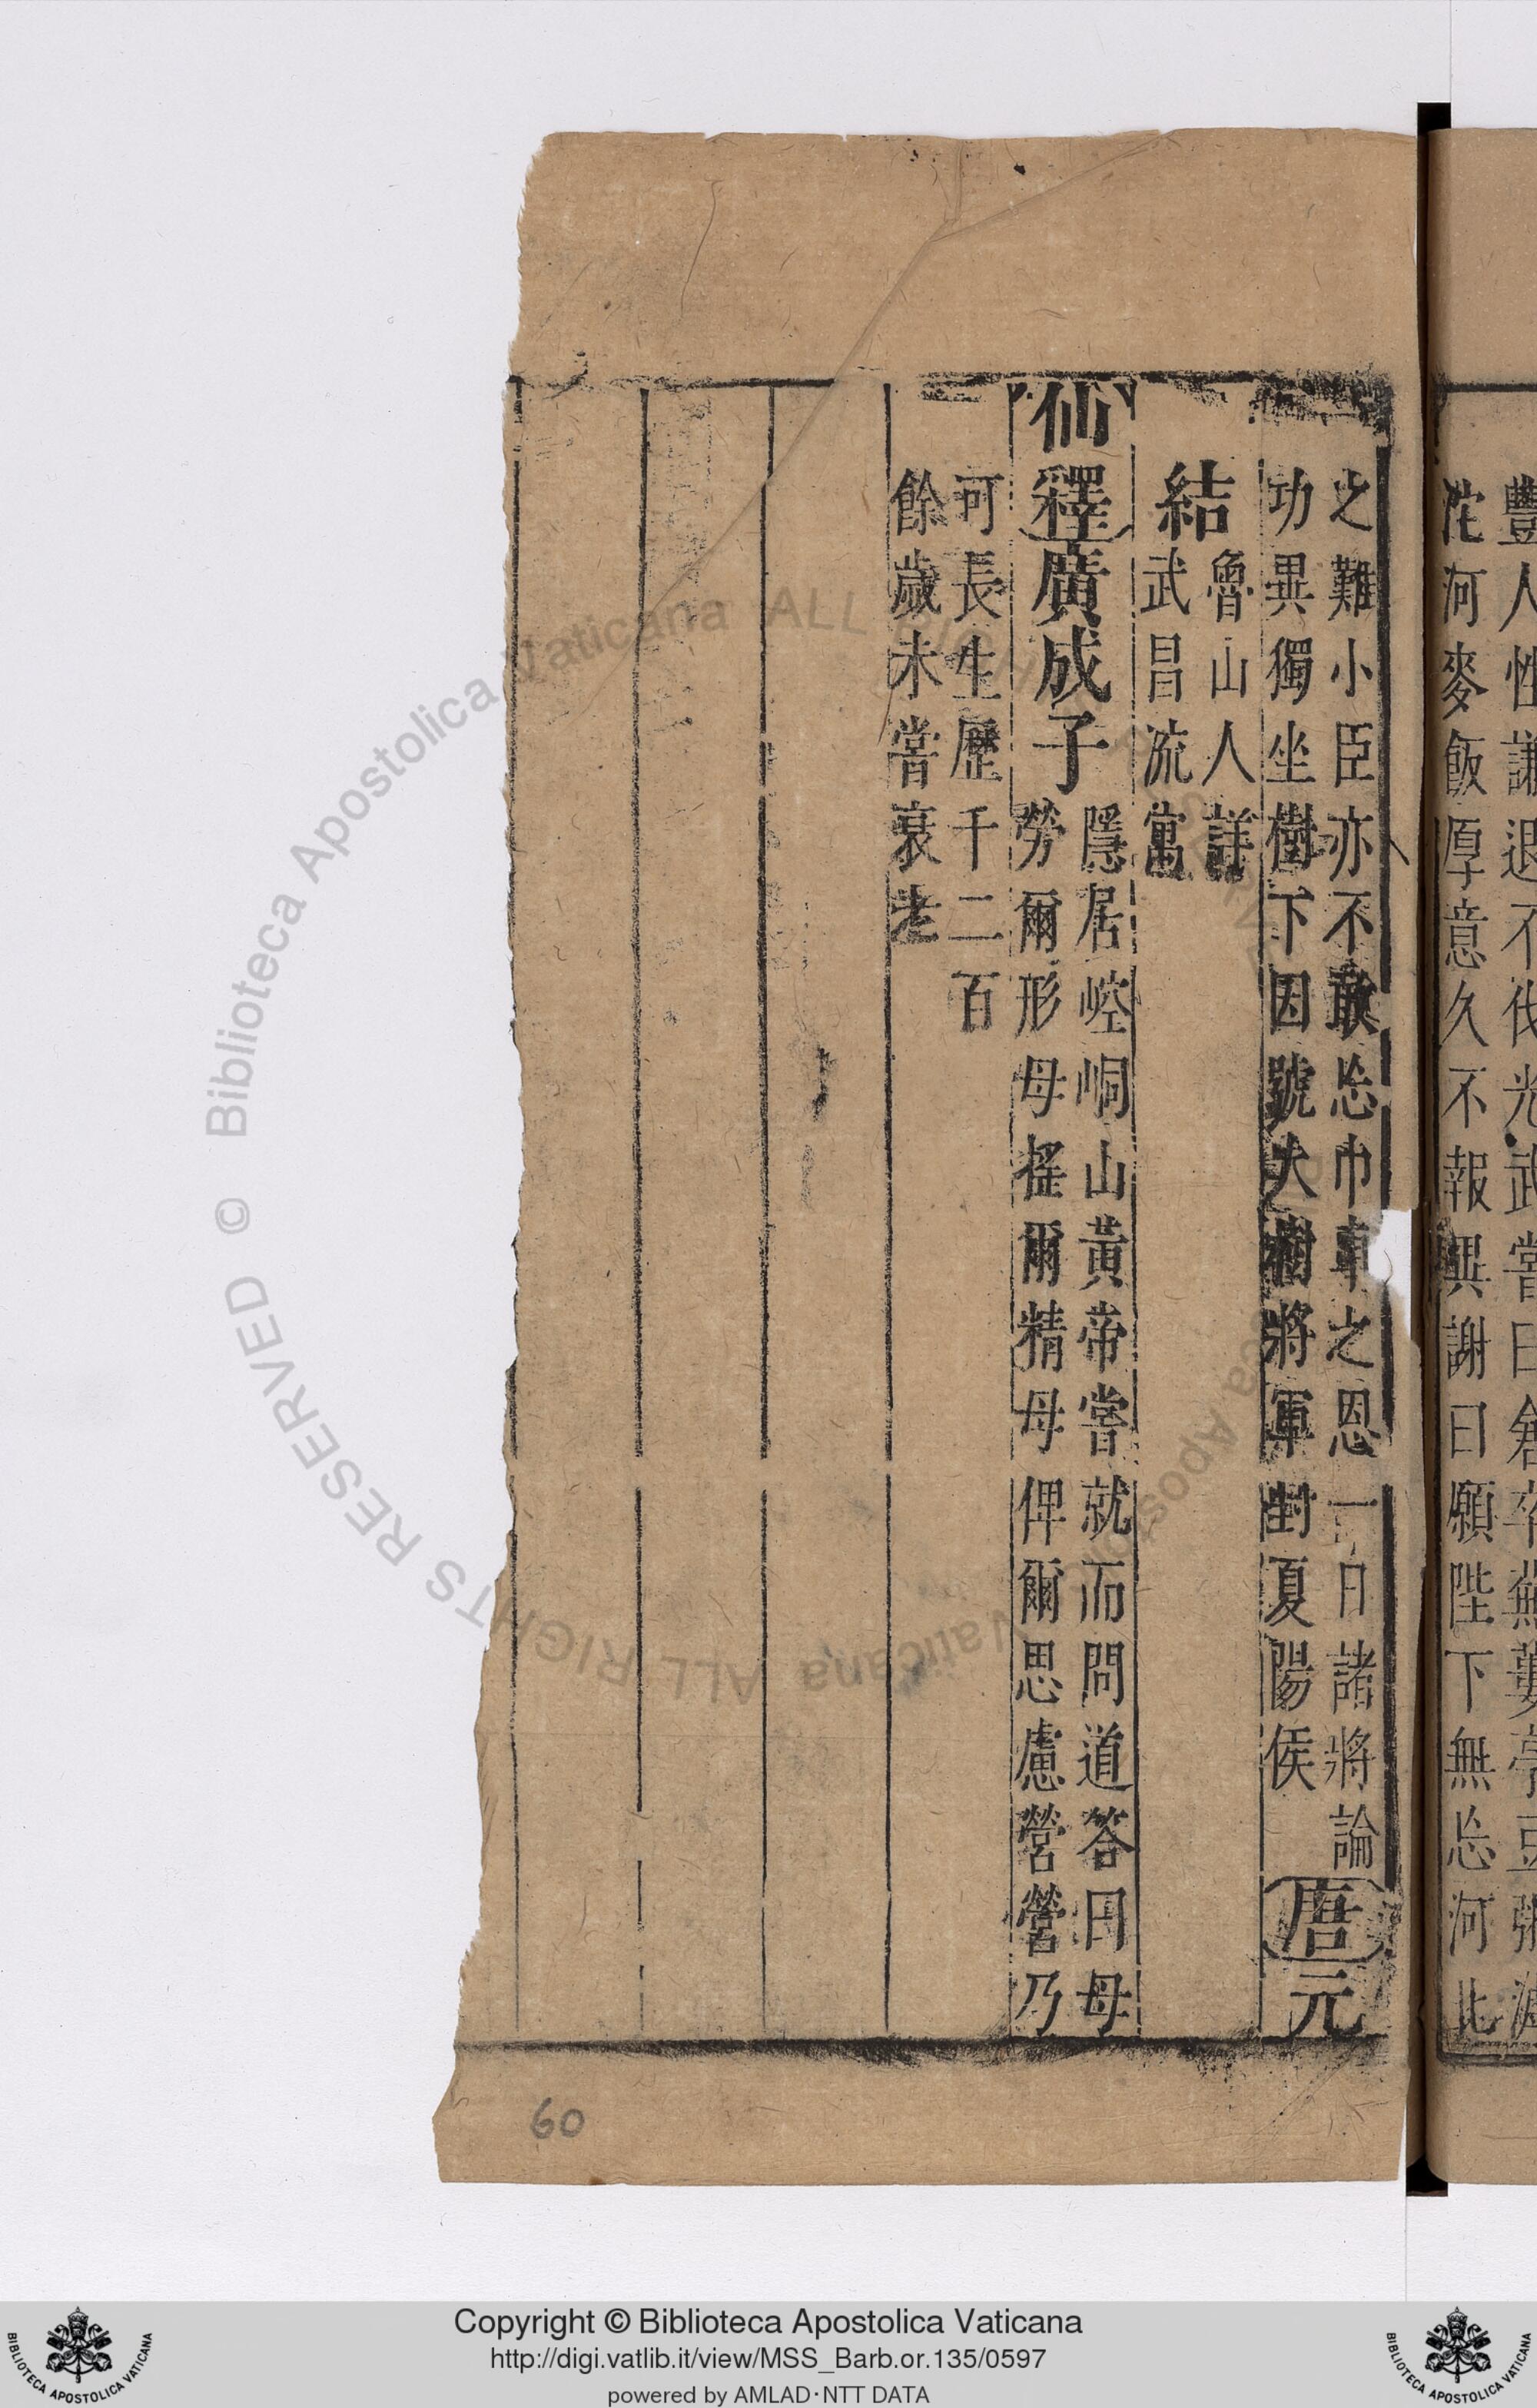 豐人性謙退不伐光武嘗曰
沱河麥飯厚意久不報異謝曰願陛下無忘河北
之難小臣亦不敢忘巾車之恩一日諸將論
功異獨坐樹下因號大樹將軍封夏陽侯
唐元
結
魯山人詳
武昌流寓
仙釋廣成子
隱居崆峒山黃帝嘗就而問道答曰毋
勞爾形毋搖爾精毋俾爾思慮營營乃
可長生歷千二百
餘歲未嘗衰老
60
© Biblioteca Apostolica Vaticana ALL RIGHTS RESERVED
Copyright © Biblioteca Apostolica Vaticana
http://digi.vatlib.it/view/MSS_Barb.or.135/0597
powered by AMLAD·NTT DATA
BIBLIOTECA APOSTOLICA VATICANA
BIBLIOTECA APOSTOLICA VATICANA